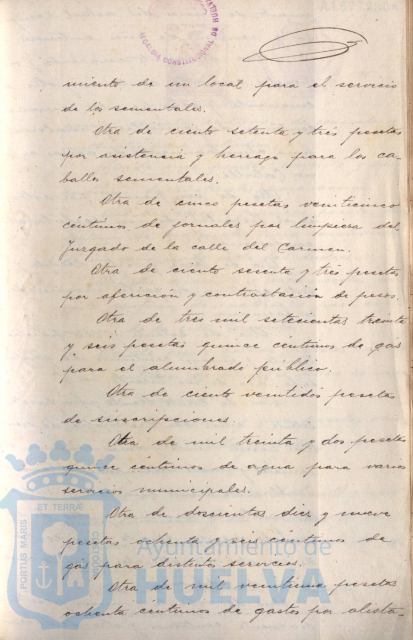 ALCALDIA CONSTITUCIONAL DE HUELVA
miento de un local para el servicio
de los sementales.
Otra de ciento setenta y tres pesetas
por asistencia y herrage para los ca-
ballos sementales.
Otra de cinco pesetas veinticinco
céntimos de jornales por limpieza del
Juzgado de la calle del Carmen.
Otra de ciento setenta y tres pesetas
por aferición y contrastación de pesos.
Otra de tres mil setecientas treinta
y seis pesetas quince céntimos de gas
para el alumbrado público.
Otra de ciento veintidos pesetas
de suscripciones.
Otra de mil treinta y dos pesetas
quince céntimos de agua para varios
servicios municipales.
Otra de doscientas diez y nueve
pesetas ochenta y seis céntimos de
gas para distintos servicios.
Otra de mil veintiuna pesetas
ochenta céntimos de gastos por alista-
PORTUS MARIS
ET TERRÆ
CUSTODIA
Ayuntamiento de
HUELVA